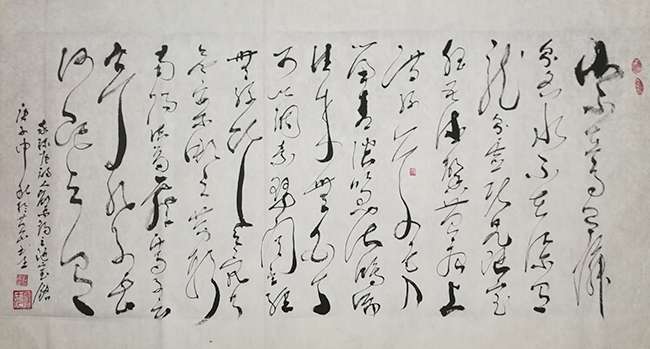 山不在高有仙
则名水不在深有
龙则灵斯是陋室
惟吾德馨苔痕上
阶绿草色入
帘青谈笑有鸿儒
往来無白丁
可以调素琴阅金经
無丝竹之乱耳
無案牍之劳形
南阳诸葛庐西蜀子云
亭孔子曰
何陋之有
刘禹锡之陋室铭
庚子中秋於